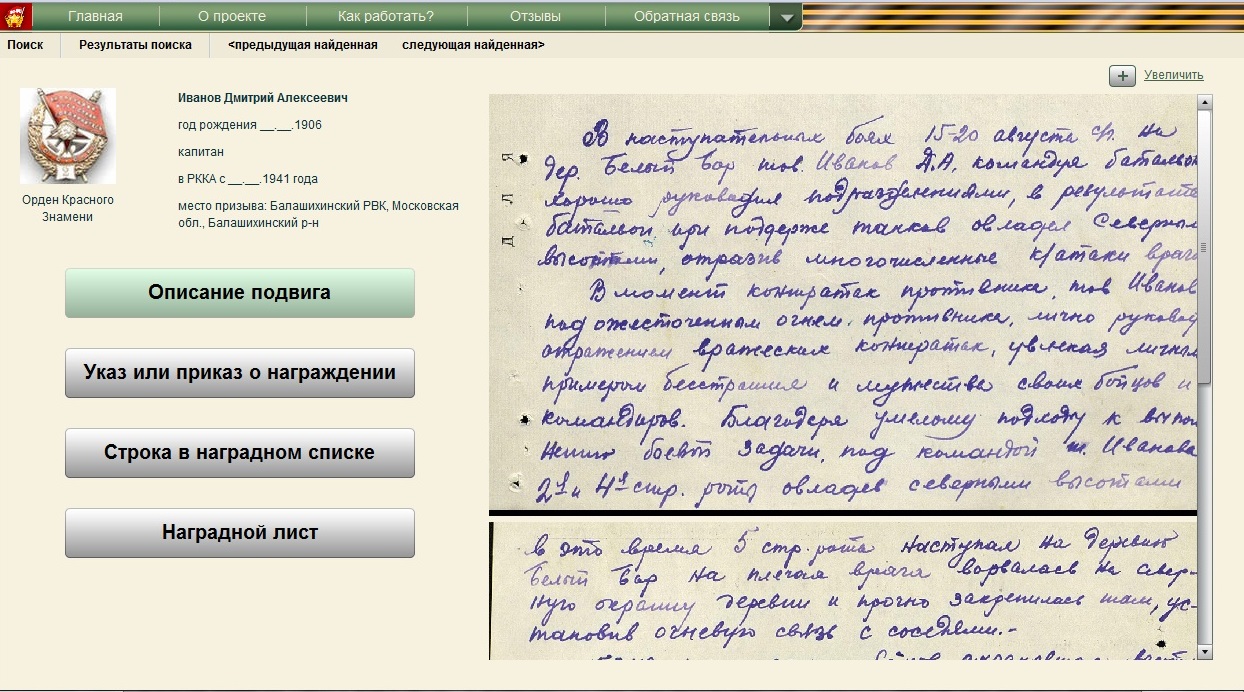 Главная О проекте Как работать? Отзывы Обратная связь
Поиск Результаты поиска <предыдущая найденная следующая найденная>
+ Увеличить
Иванов Дмитрий Алексеевич
год рождения __.__.1906
капитан
в РККА с __.__.1941 года
место призыва: Балашихинский РВК, Московская
обл., Балашихинский р-н
Орден Красного
Знамени
Описание подвига
Указ или приказ о награждении
Строка в наградном списке
Наградной лист
Для
В наступательных боях 15-20 августа с/г. на
дер. Белый Бор тов. Иванов Д.А. командуя баталь
хорошо руководил подразделениями, в результате
батальон при поддерже танков овладел Северным
высотами, отразив многочисленные к/атаки врага
В момент контратак противника, тов Иванов
под ожесточенным огнем противника, лично руковод
отражением вражеских контратак, увлекая личным
примером бесстрашия и мужества своих бойцов и
командиров. Благодаря умелому подходу к выпол
нению боевой задачи, под командой т. Иванова
2я и 4я стр. роты овладев северными высотами
в это время 5 стр. рота наступая на деревню
Белый Бор на плечах врага ворвалась на север-
ную окраину деревни и прочно закрепилась там, ус-
тановив огневую связь с соседями.-